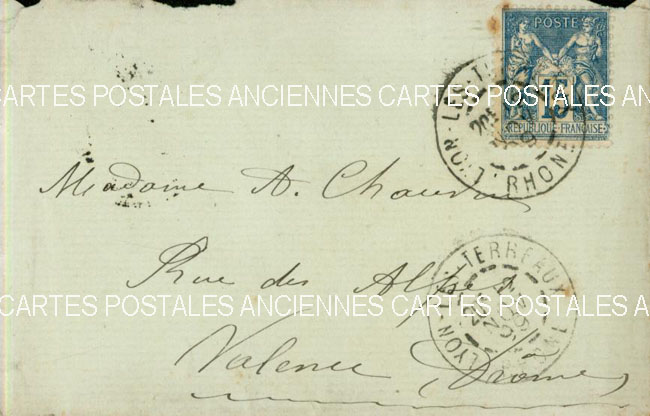 POSTE
15
REPUBLIQUE FRANÇAISE
LYON - RHONE
CARTES POSTALES ANCIENNES CARTES POSTALES ANCIENNES
Madame A.
Rue des Alpes
LYON TERREAUX
CARTES POSTALES ANCIENNES CARTES POSTALES ANCIENNES
Valence (Drôme)